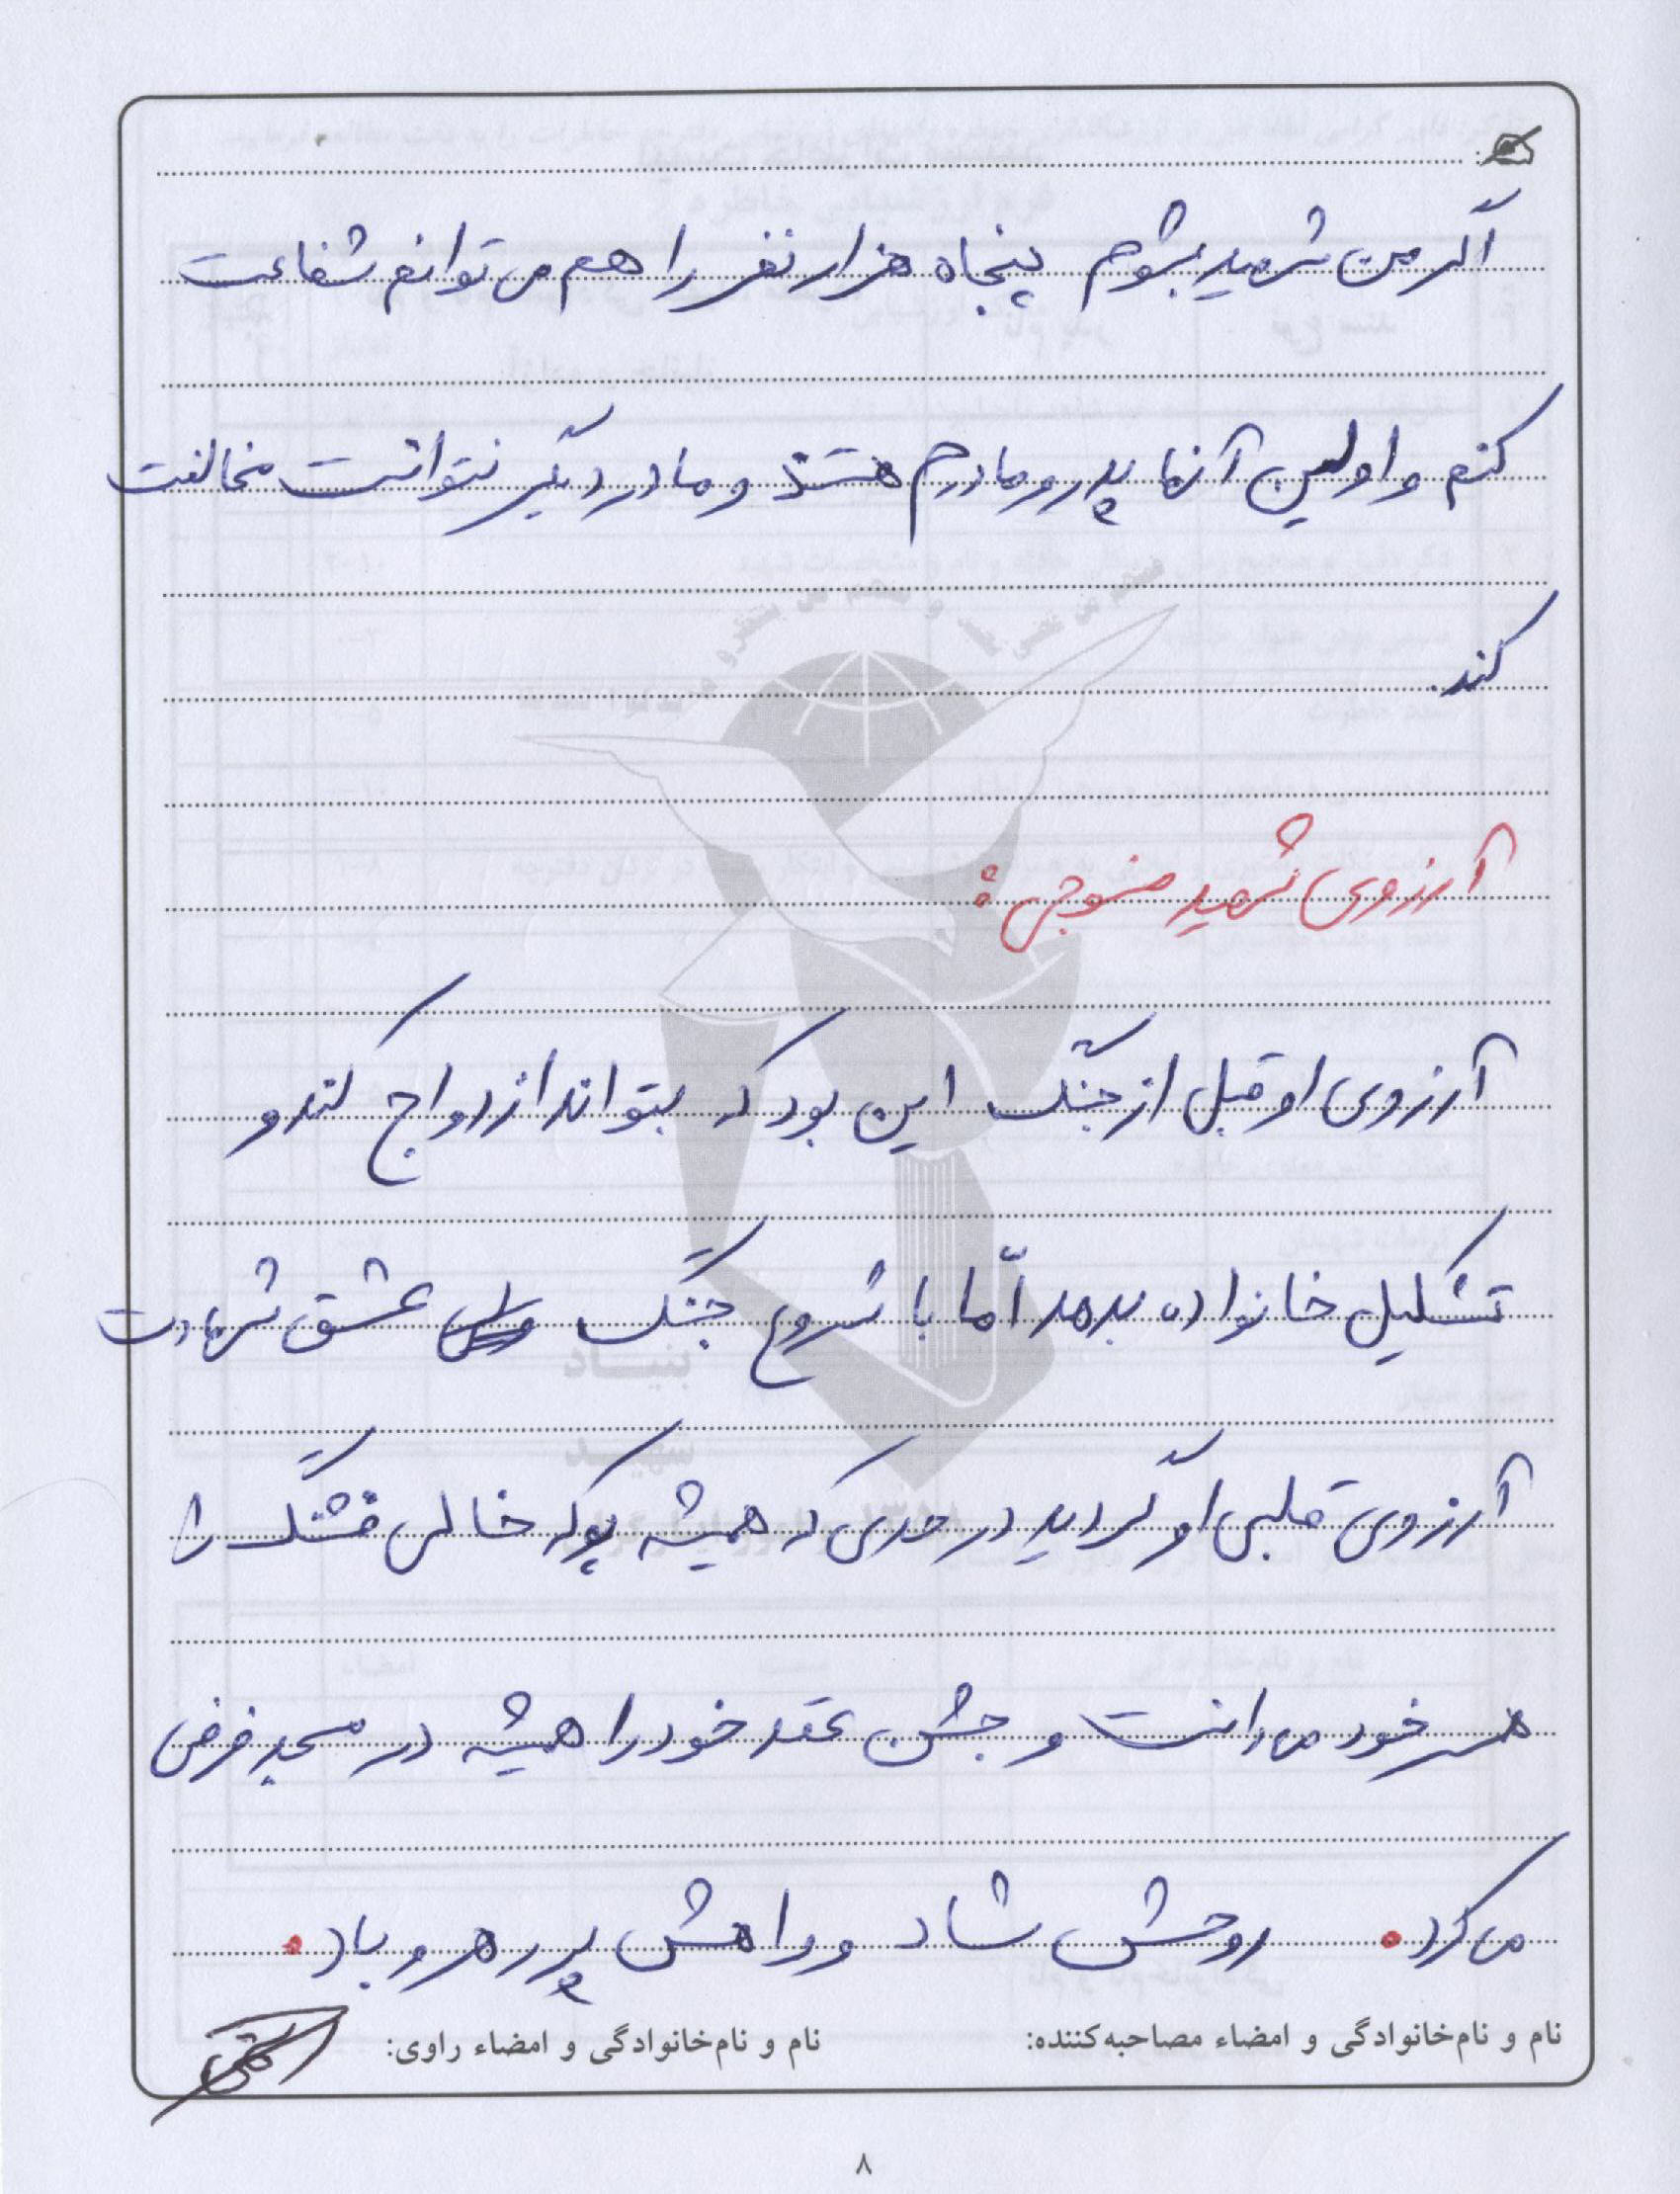 اگر من شهید بشوم پنجاه هزار نفر را هم می توانم شفاعت
کنم و اولین آنها پدر و مادرم هستند و مادر دیگر نتوانست مخالفت
کند.
آرزوی شهید منوچهر:
آرزوی او قبل از جنگ این بود که بتواند ازدواج کند و
تشکیل خانواده بدهد امّا با شروع جنگ عشق شهادت
آرزوی قلبی او گردید در حدی که همیشه پوکه خالی فشنگ را
همسر خود می دانست و جشن عقد خود را همیشه در مسجد فرض
می کرد. روحش شاد و راهش پر رهرو باد.
نام و نام‌خانوادگی و امضاء مصاحبه‌کننده:
نام و نام‌خانوادگی و امضاء راوی:
بنیاد
شهید
۸